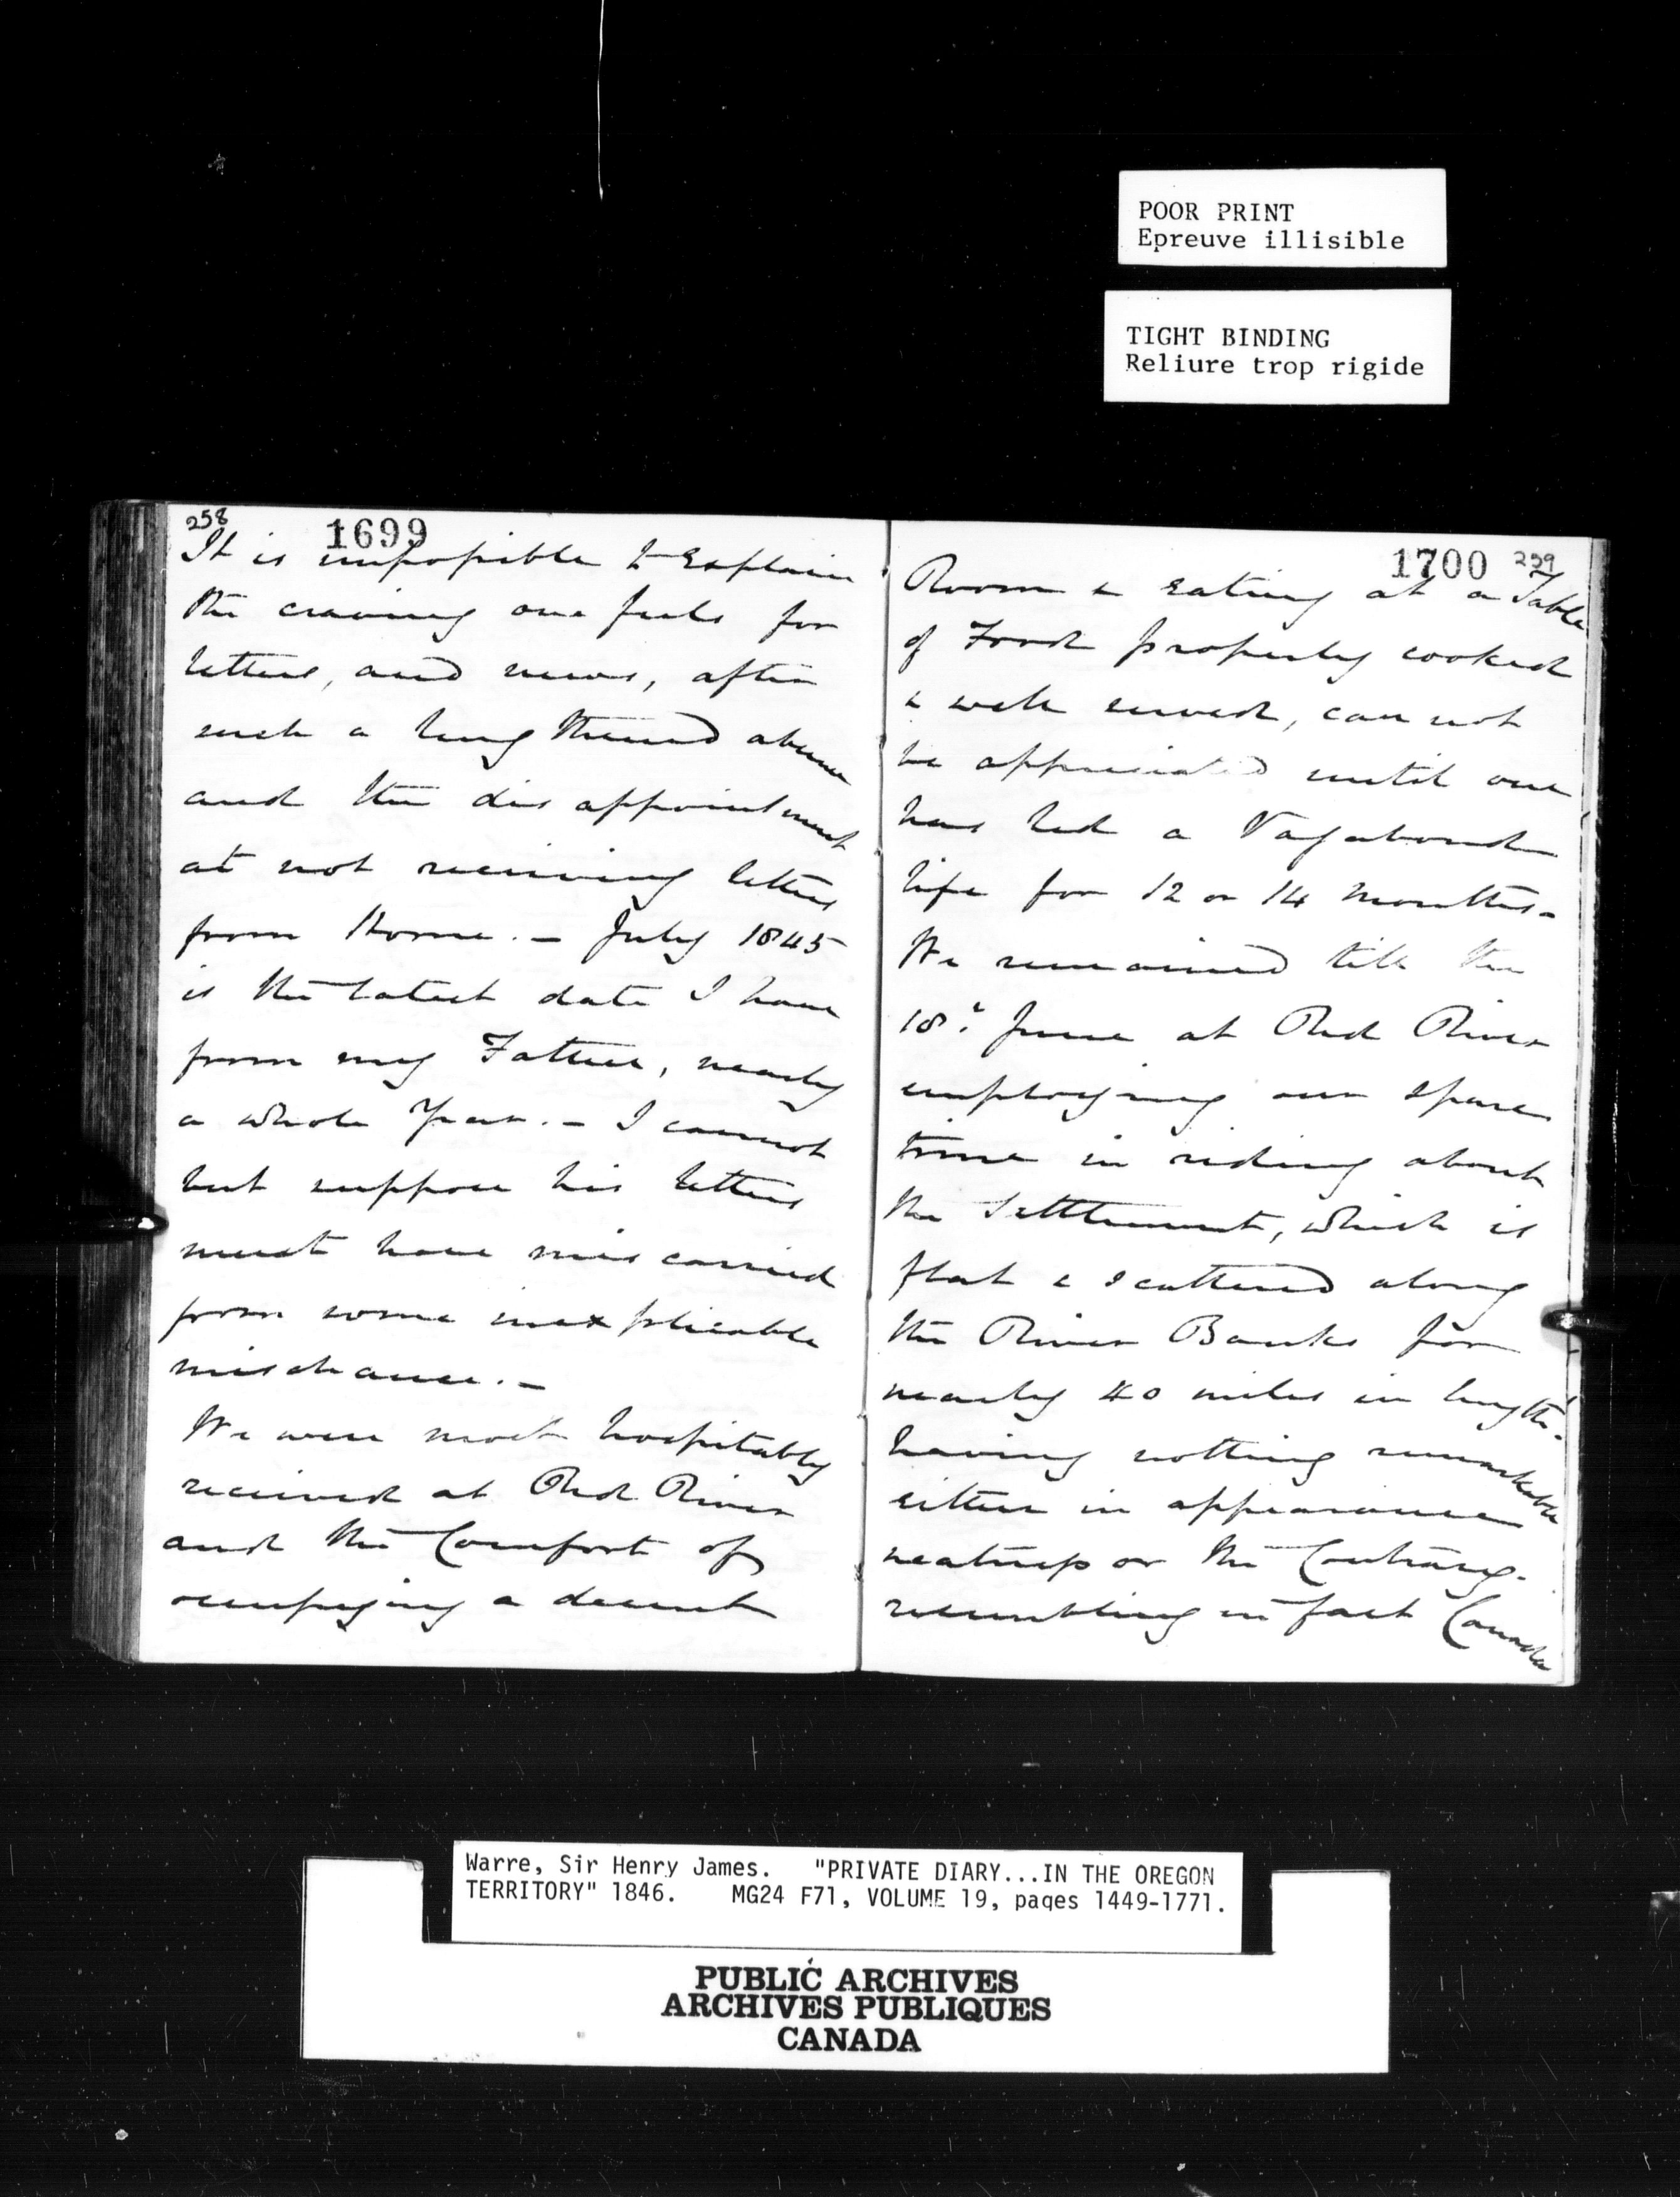 POOR PRINT
Epreuve illisible
TIGHT BINDING
Reliure trop rigide
258
1699
It is impossible to Explain
the craving one feels for
letters, and news, after
such a lengthened absence
and the dis appointment
at not receiving letters
from Home. - July 1845
is the latest date I have
from my Father, nearly
a whole Year. - I cannot
but suppose his letters
must have mis carried
from some inexplicable
mischance. -
We were most hospitably
received at Red River
and the Comfort of
occupying a decent
1700 259
Room & Eating at a Table
of Food properly cooked
& well served, can not
be appreciated until one
has led a Vagabond
life for 12 or 14 months -
We remained till the
18th June at Red River
employing our spare
time in riding about
the Settlement, which is
flat & scattered along
the River Banks for
nearly 40 miles in length.
having nothing remarkable
either in appearance
neatness or the Contrary.
resembling in fact Canada
Warre, Sir Henry James. "PRIVATE DIARY...IN THE OREGON
TERRITORY" 1846. MG24 F71, VOLUME 19, pages 1449-1771.
PUBLIC ARCHIVES
ARCHIVES PUBLIQUES
CANADA